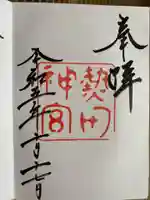 奉拝
熱田
神宮
令和五年一月十七日